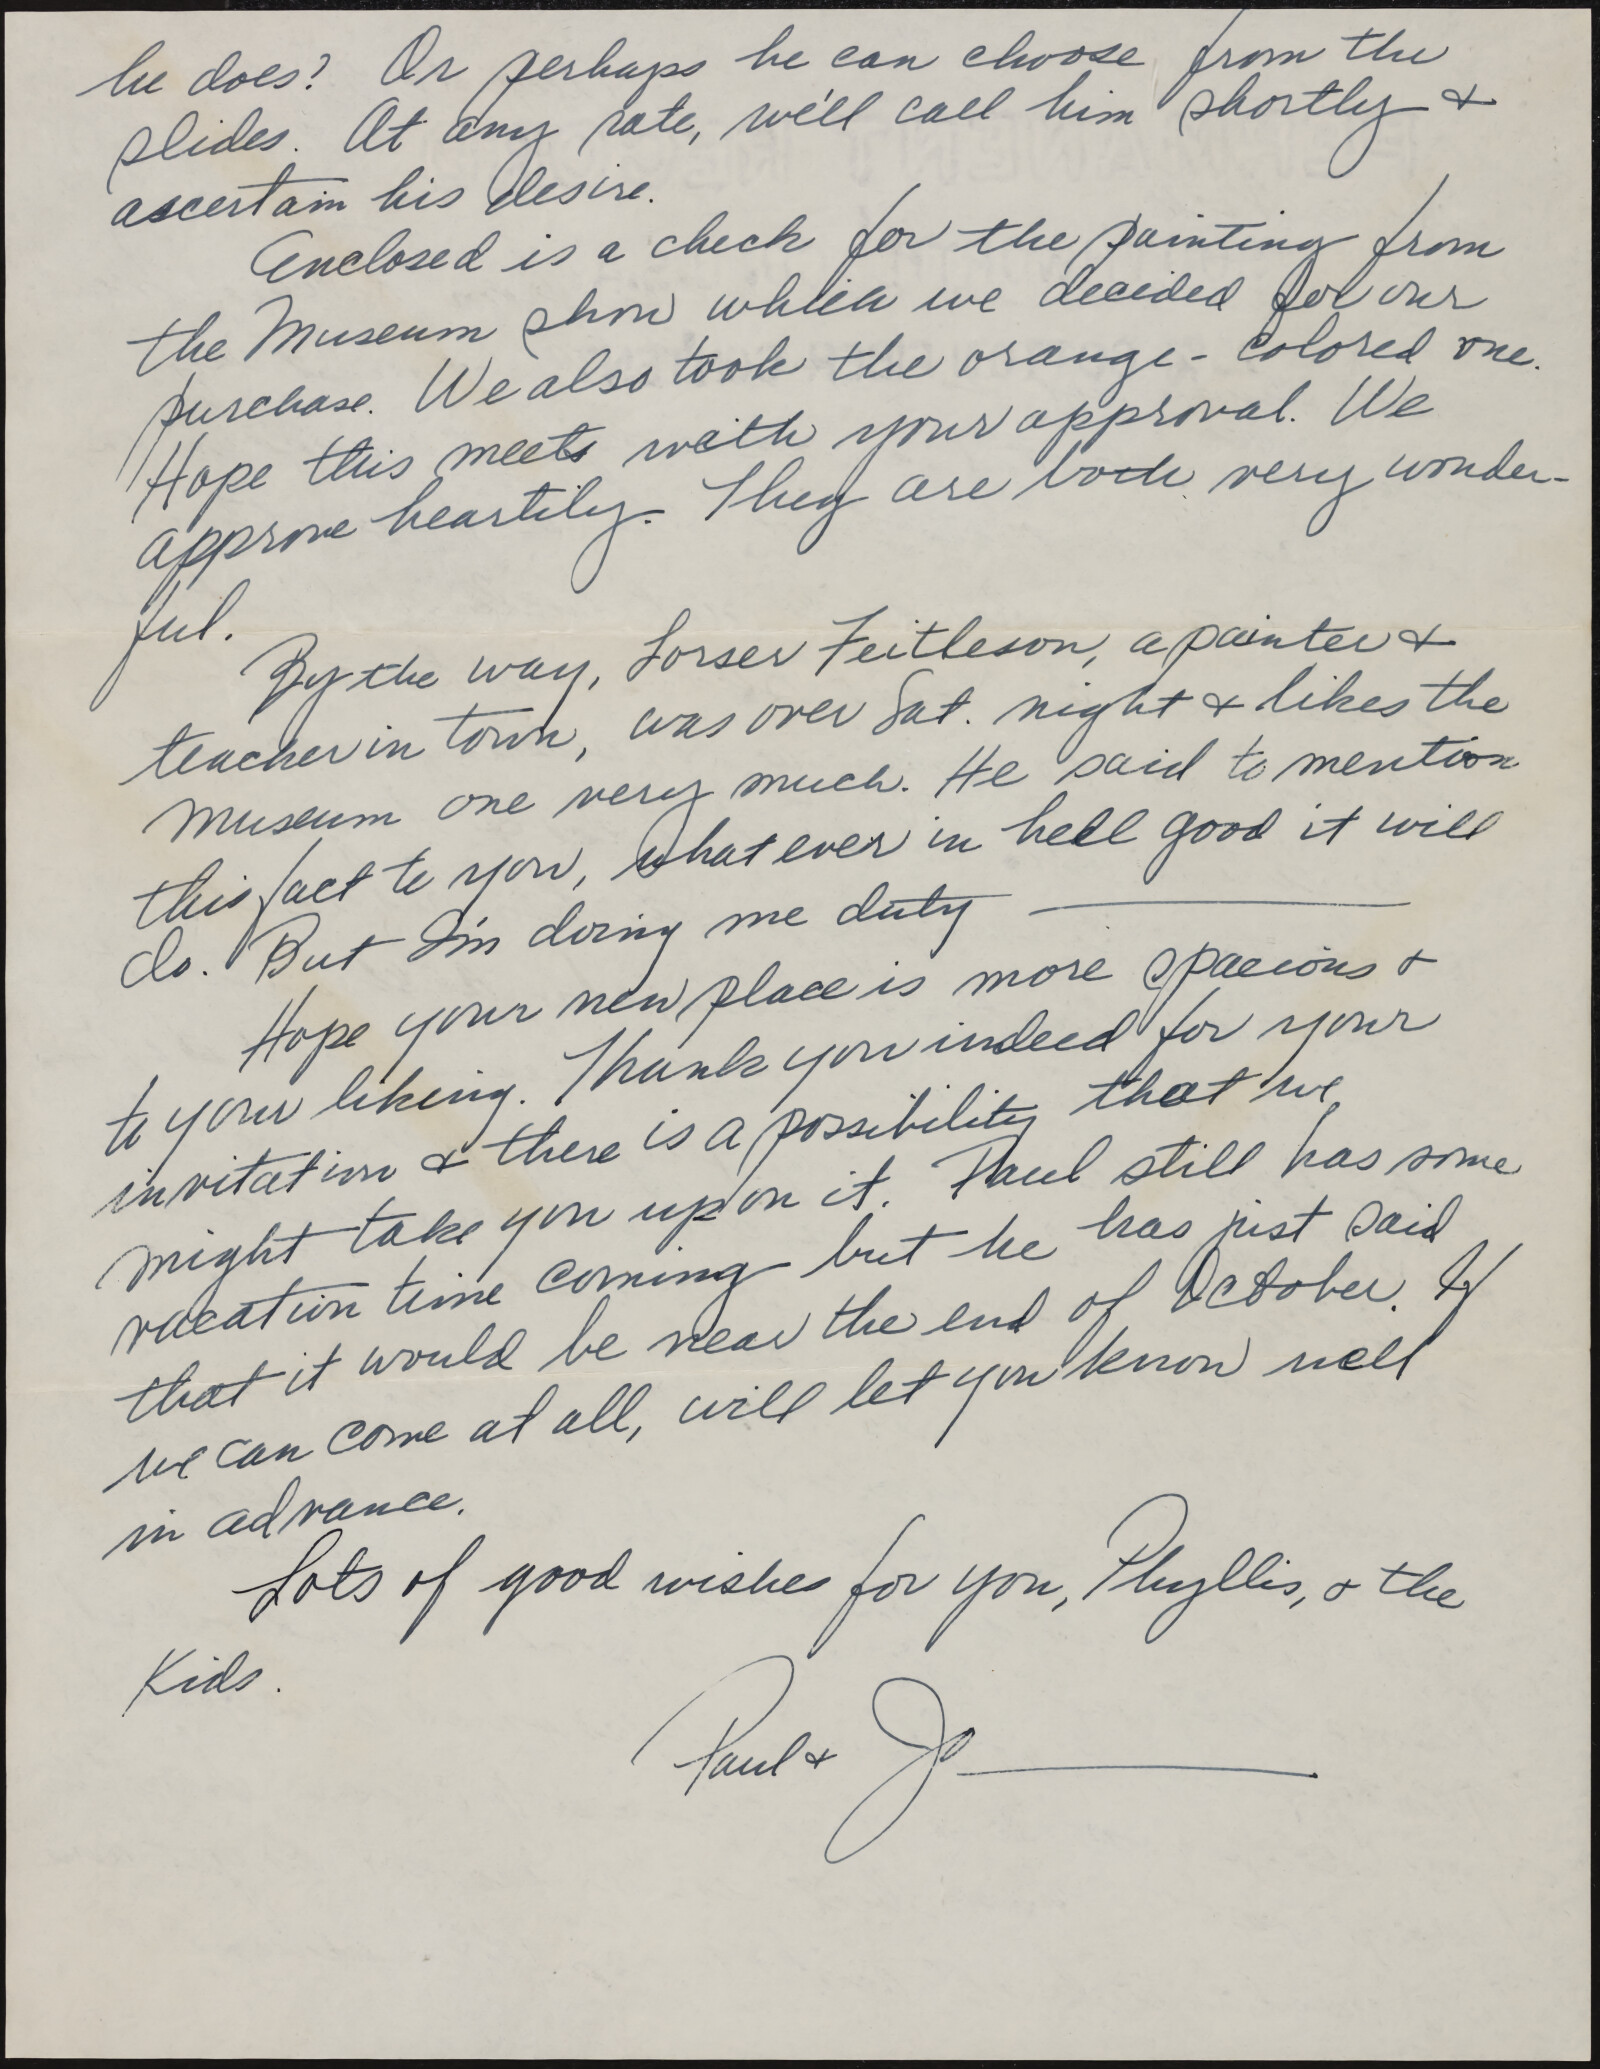 he does? Or perhaps he can choose from the
slides. At any rate, we'll call him shortly &
ascertain his desire.
Enclosed is a check for the painting from
the Museum show which we decided for our
purchase. We also took the orange-colored one.
Hope this meets with your approval. We
approve heartily. They are both very wonder-
ful.
By the way, Lorser Feitleson, a painter &
teacher in town, was over Sat. night & likes the
Museum one very much. He said to mention
this fact to you, what ever in hell good it will
do. But I'm doing me duty —
Hope your new place is more spacious &
to your liking. Thank you indeed for your
invitation & there is a possibility that we
might take you up on it. Paul still has some
vacation time coming but he has just said
that it would be near the end of October. If
we can come at all, will let you know well
in advance.
Lots of good wishes for you, Phyllis, & the
Kids.
Paul & Jo —